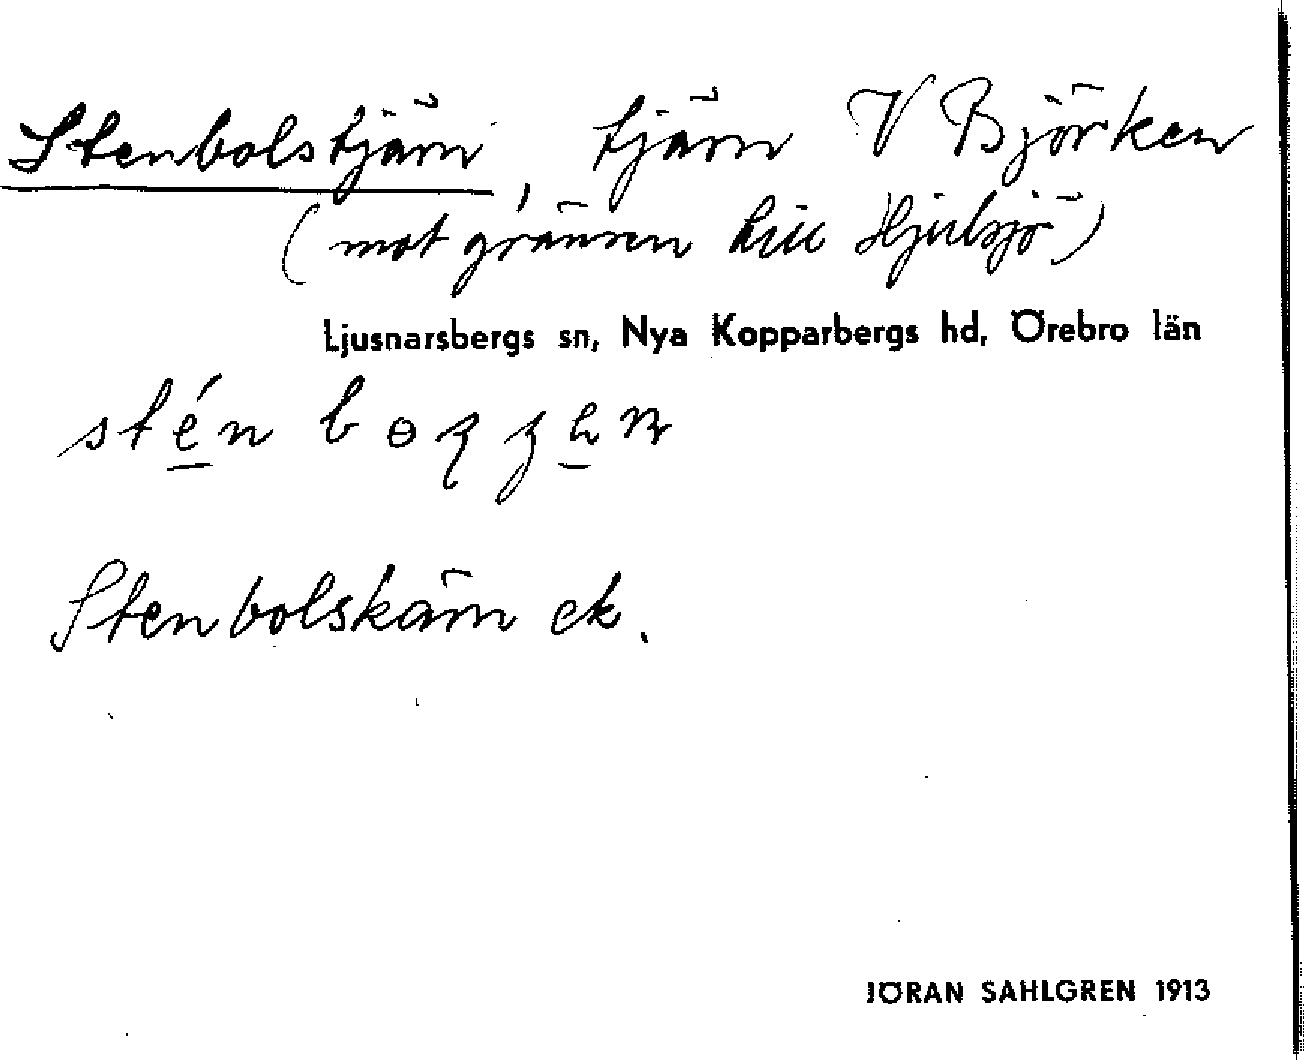 Stenbolstjärn, tjärn V Björken
(mot gränsen till Hjulsjö)
Ljusnarsbergs sn, Nya Kopparbergs hd, Örebro län
stén
Stenbolskärn ek.
JÖRAN SAHLGREN 1913